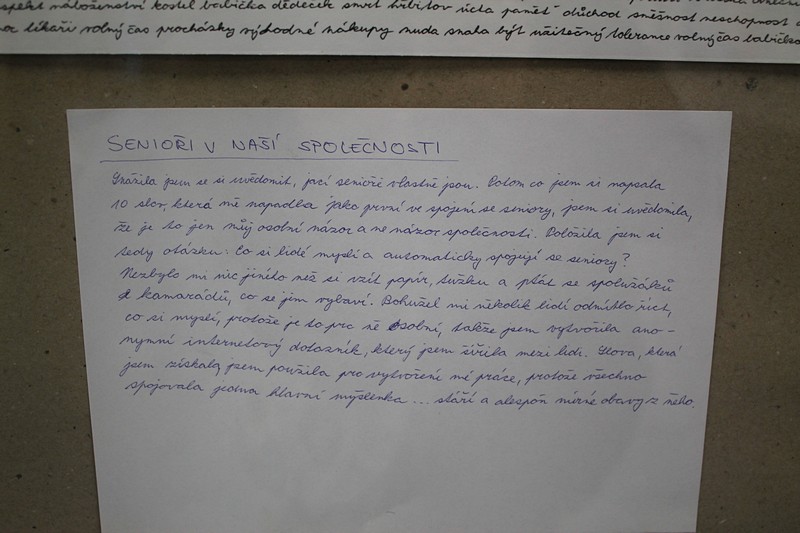 náboženství kostel babička dědeček smrt hřbitov úcta paměť důchod sněžnost neschopnost
lékaři volný čas procházky výhodné nákupy nuda snaha být užitečný tolerance volný čas babička
SENIOŘI V NAŠÍ SPOLEČNOSTI
Snažila jsem se si uvědomit, jací senioři vlastně jsou. Potom co jsem si napsala
10 slov, která mě napadla jako první ve spojení se seniory, jsem si uvědomila,
že je to jen můj osobní názor a ne názor společnosti. Položila jsem si
tedy otázku: Co si lidé myslí a automaticky spojují se seniory?
Nezbylo mi nic jiného než si vzít papír, tužku a ptát se spolužáků
a kamarádů, co se jim vybaví. Bohužel mi několik lidí odmítlo říct,
co si myslí, protože je to pro ně osobní, takže jsem vytvořila ano-
nymní internetový dotazník, který jsem šířila mezi lidi. Slova, která
jsem získala, jsem použila pro vytvoření mé práce, protože všechno
spojovala jedna hlavní myšlenka ... stáří a alespoň mírné obavy z něho.